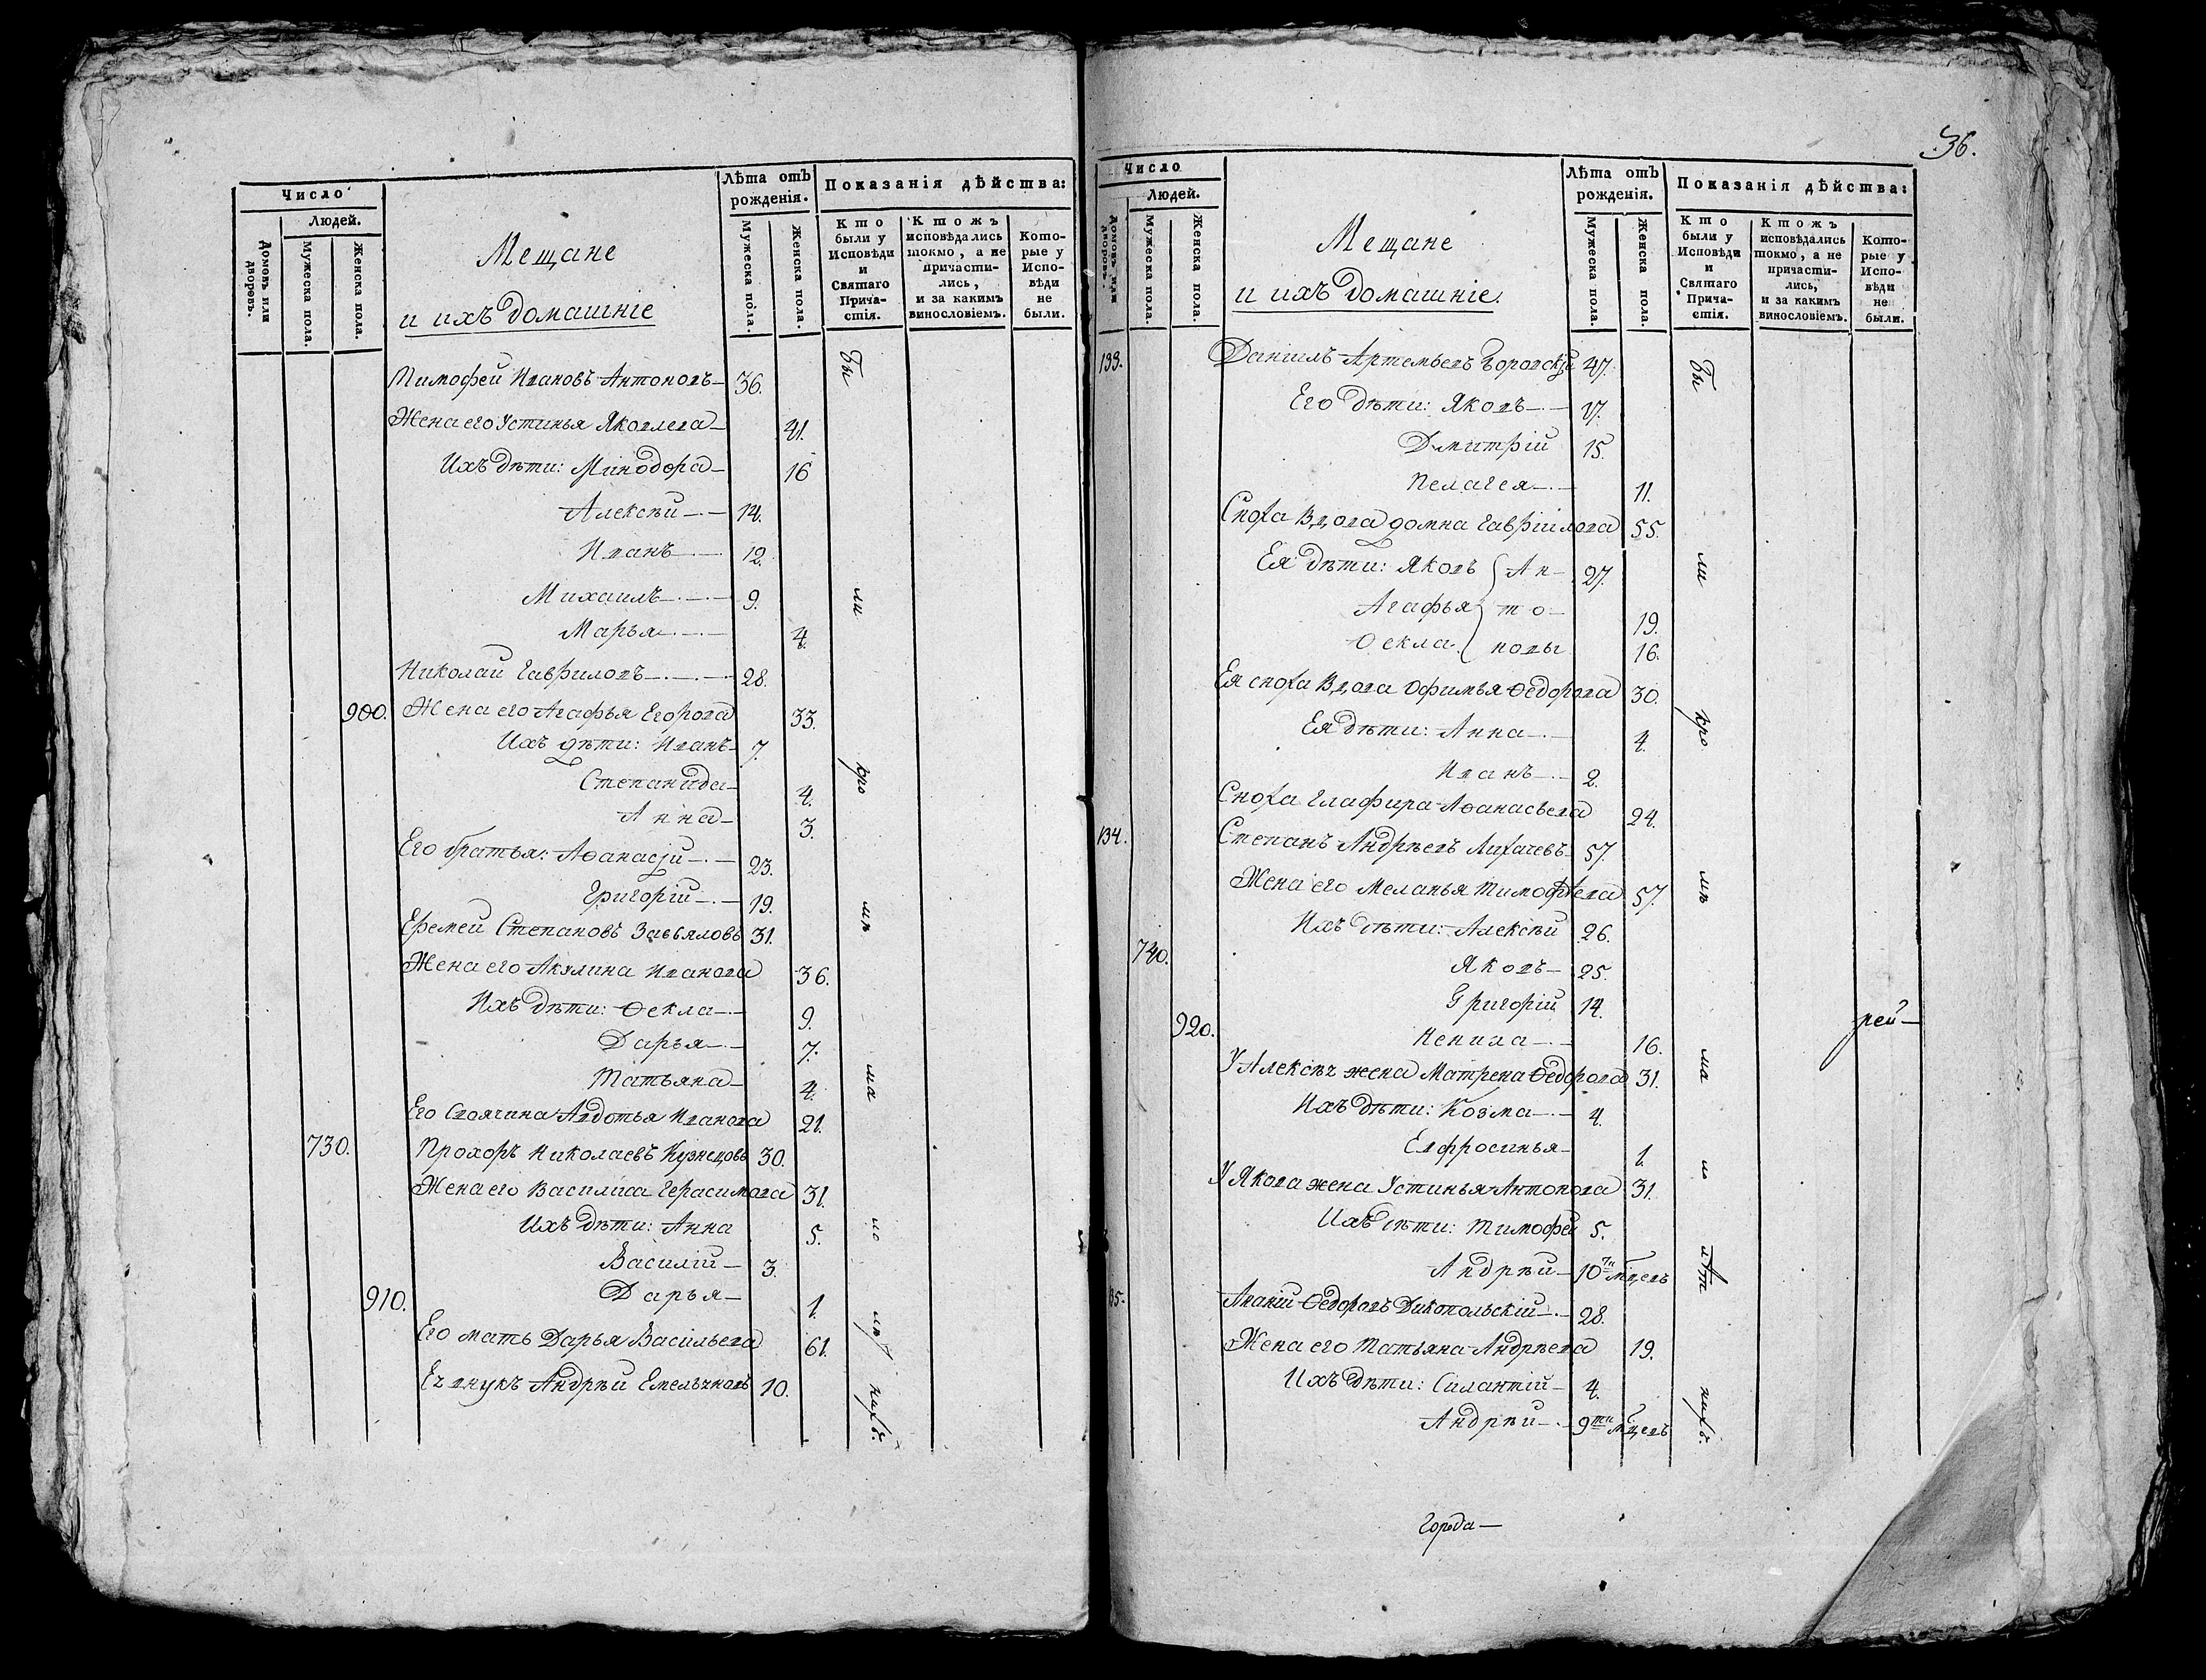 Число
Людей.
Домовъ или дворовъ.
Мужеска пола.
Женска пола.
Мещане
и ихъ домашніе
Лѣта отъ рожденія.
Мужеска пола.
Женска пола.
Показанія дѣйства:
Кто были у Исповѣди и Святаго Прича-стія.
Ктожъ исповѣдались токмо, а не причасти-лись, и за какимъ винословіемъ.
Кото-рые у Испо-вѣди не были.
Тимофей Ивановъ Антоновъ 36.
Жена его Устинья Яковлева 41.
Ихъ дѣти: Минодора 16
Алексѣй 14.
Иванъ 12.
Михаилъ 9.
Марья 4.
Николай Гавриловъ 28.
900. Жена его Агафья Егорова 33.
Ихъ дѣти: Иванъ 7.
Степанида 4.
Анна 3.
Его братья: Аѳанасій 23.
Григорій 19.
Еремей Степановъ Завьяловъ 31.
Жена его Акулина Иванова 36.
Ихъ дѣти: Ѳекла 9.
Дарья 7.
Татьяна 4.
Его своячина Авдотья Иванова 21.
730. Прохоръ Николаевъ Кузнецовъ 30.
Жена его Василиса Герасимова 31.
Ихъ дѣти: Анна 5.
Василій 3.
910. Дарья 1.
Его мать Дарья Васильева 61.
Ея внукъ Андрѣй Емельяновъ 10.
Бы
ли
кро
мѣ
ма
ло
лѣт
нихъ.
36.
Число
Людей.
Домовъ или дворовъ.
Мужеска пола.
Женска пола.
Мещане
и ихъ домашніе.
Лѣта отъ рожденія.
Мужеска пола.
Женска пола.
Показанія дѣйства:
Кто были у Исповѣди и Святаго Прича-стія.
Ктожъ исповѣдались токмо, а не причасти-лись, и за какимъ винословіемъ.
Кото-рые у Испо-вѣди не были.
133. Даніилъ Артемьевъ 47.
Его дѣти: Яковъ 17.
Дмитрій 15.
Пелагея 11.
Сноха вдова Домна Гавріилова 55.
Ея дѣти: Яковъ Ан- 27.
Агафья то- 19.
Ѳекла новы 16.
Ея сноха вдова Офимья Ѳедорова 30.
Ея дѣти: Анна 4.
Иванъ 2.
Сноха Глафира Аѳанасьева 24.
134. Степанъ Андрѣевъ Лихачевъ 57.
Жена его Меланья Тимофѣева 57.
Ихъ дѣти: Алексѣй 26.
740. Яковъ 25.
Григорій 14.
920. Ненила 16.
У Алексѣя жена Матрена Ѳедорова 31.
Ихъ дѣти: Козма 4.
Евфросинья 1.
У Якова жена Устинья Антонова 31.
Ихъ дѣти: Тимофей 5.
Андрѣй 10ти мцевъ
135. Ананій Ѳедоровъ Дикопольскій 28.
Жена его Татьяна Андрѣева 19.
Ихъ дѣти: Силантій 4.
Андрѣй 9ти мцевъ
Бы
ли
кро
мѣ
ма
ло
лѣт
нихъ.
рей
Города